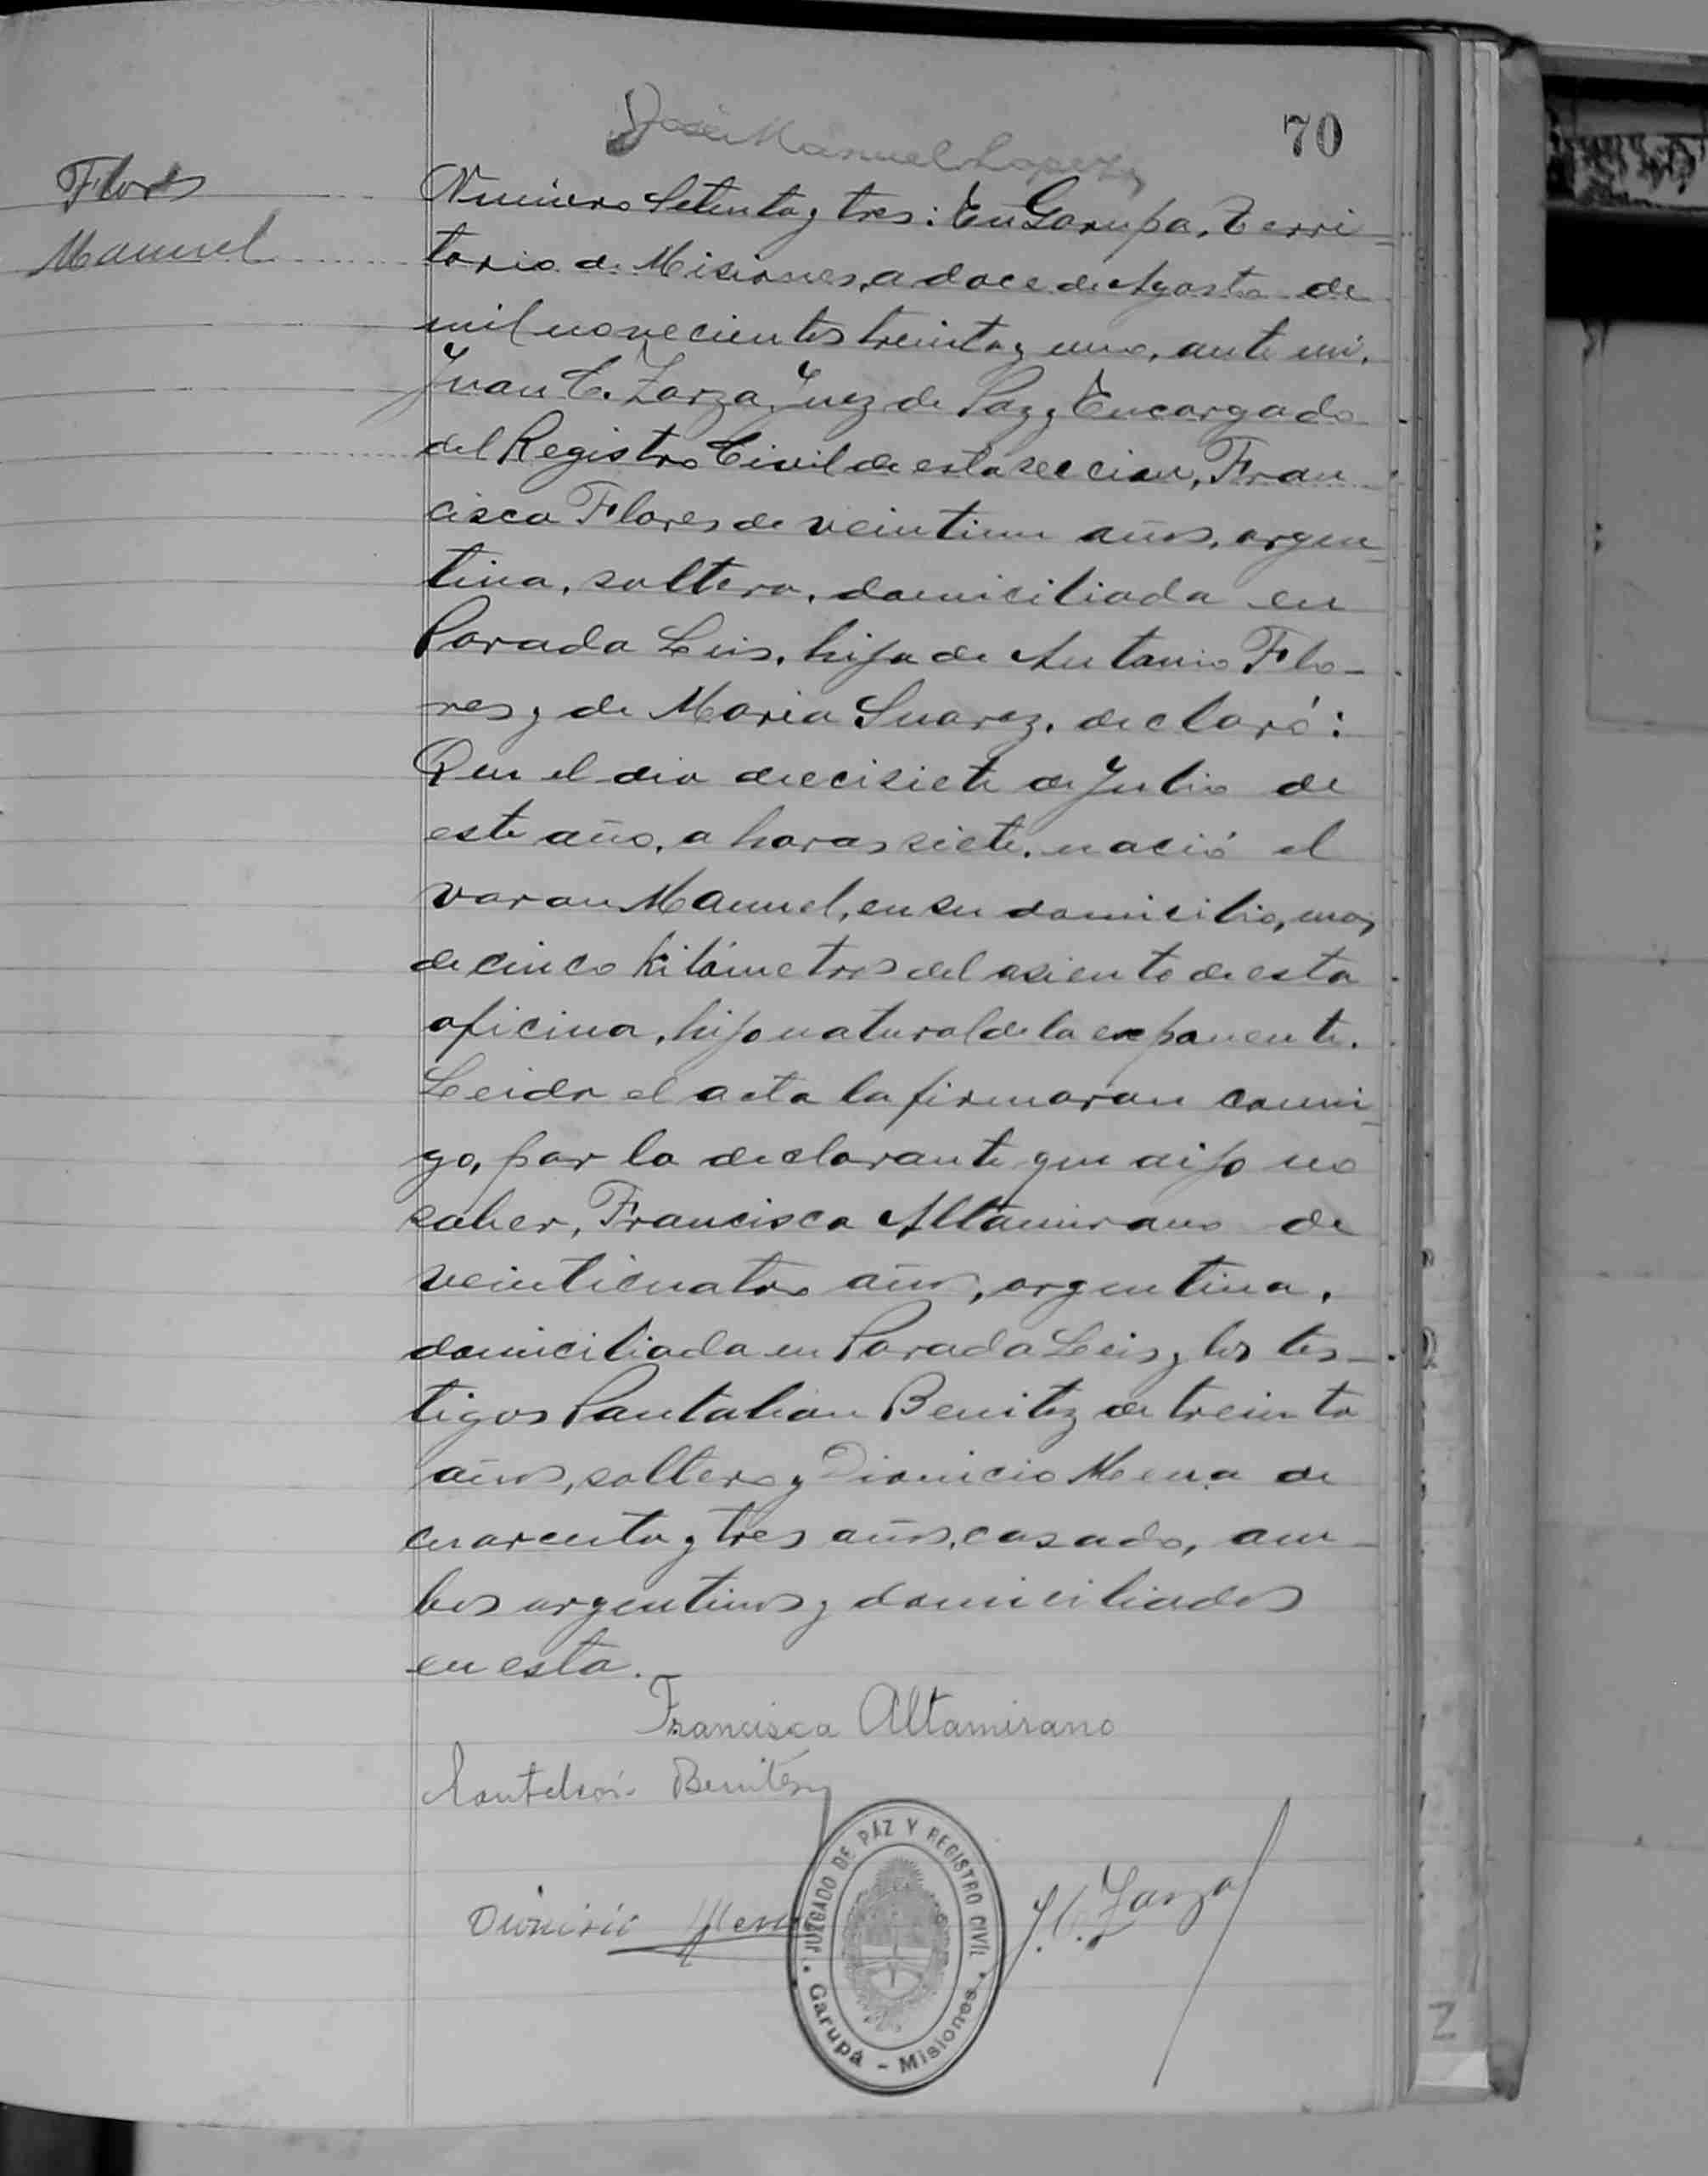 70
José Manuel Lopez
Flores
Manuel
Número Setenta y tres: En Garupa, Terri-
torio de Misiones, a doce de Agosto de
mil novecientos treinta y uno, ante mi,
Juan C. Zarza, Juez de Paz y Encargado
del Registro Civil de esta seccion, Fran-
cisca Flores de veintiun años, argen-
tina, soltera, domiciliada en
Parada Leis, hija de Antonio Flo-
res y de Maria Suarez, declaró:
Que el dia diecisiete de Julio de
este año, a horas siete, nació el
varon Manuel, en su domicilio, mas
de cinco kilómetros del asiento de esta
oficina, hijo natural de la exponente.
Leida el acta la firmaron conmi-
go, por la declarante que dijo no
saber, Francisca Altamirano de
veinticuatro años, argentina,
domiciliada en Parada Leis y los tes-
tigos Pantaleon Benitez de treinta
años, soltero y Dionicio Mena de
cuarenta y tres años, casado, am-
bos argentinos y domiciliados
en esta.
Francisca Altamirano
Pantaleón Benitez
Dionisio Mena
J. C. Zarza
JUZGADO DE PAZ Y REGISTRO CIVIL
Garupá - Misiones
Z